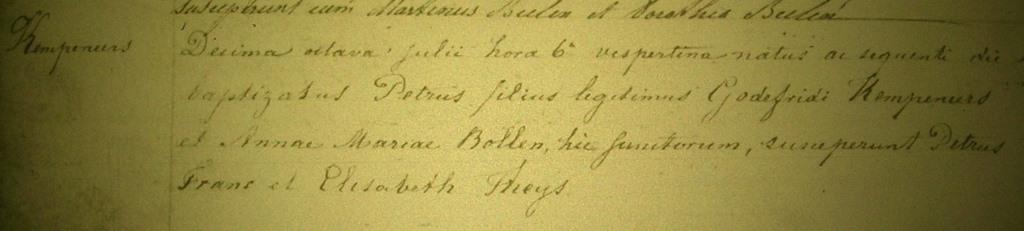 susceperunt eum Martinus Bielen et Dorothea Bielen
Kempeneers
Decima octava julii hora 6ª vespertina natus ac sequenti die
baptizatus Petrus filius legitimus Godefridi Kempeneers
et Annae Mariae Bollen, hic junctorum, susceperunt Petrus
Franc et Elisabeth Theys.